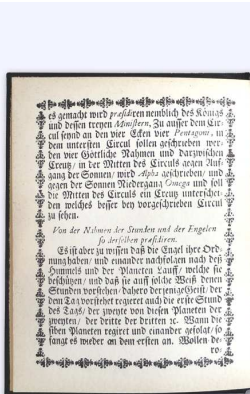 es gemacht wird præsidiren nemblich des Königs
und dessen treyen Ministern. Zu ausser dem Cir-
cul seynd an den vier Ecken vier Pentagone, in
dem untersten Circul sollen geschrieben wer-
den vier Göttliche Nahmen und darzwischen
Creutz / in der Mitten des Circuls gegen Auff-
gang der Sonnen / wird Alpha geschrieben / und
gegen der Sonnen Niedergang Omega und soll
die Mitten des Circuls ein Creutz unterschei-
den welches besser bey vorgeschrieben Circul
zu sehen.
Von der Nahmen der Stunden und der Engelen
so derselben præsidiren.
Es ist aber zu wissen daß die Engel ihre Ord-
nung haben / und einander nachfolgen nach deß
Himmels und der Planeten Lauff / welche sie
beschützen / und daß sie auff solche Weiß denen
Stunden vorstehen / dahero der jenige Geist / der
dem Tag vorstehet regieret auch die erste Stund
des Tags / der zweyte von diesen Planeten der
zweyten / der dritte der dritten ꝛc. Wann die
siben Planeten regiret und einander gefolgt / so
fangt es wieder an dem ersten an. Wollen de-
ro-